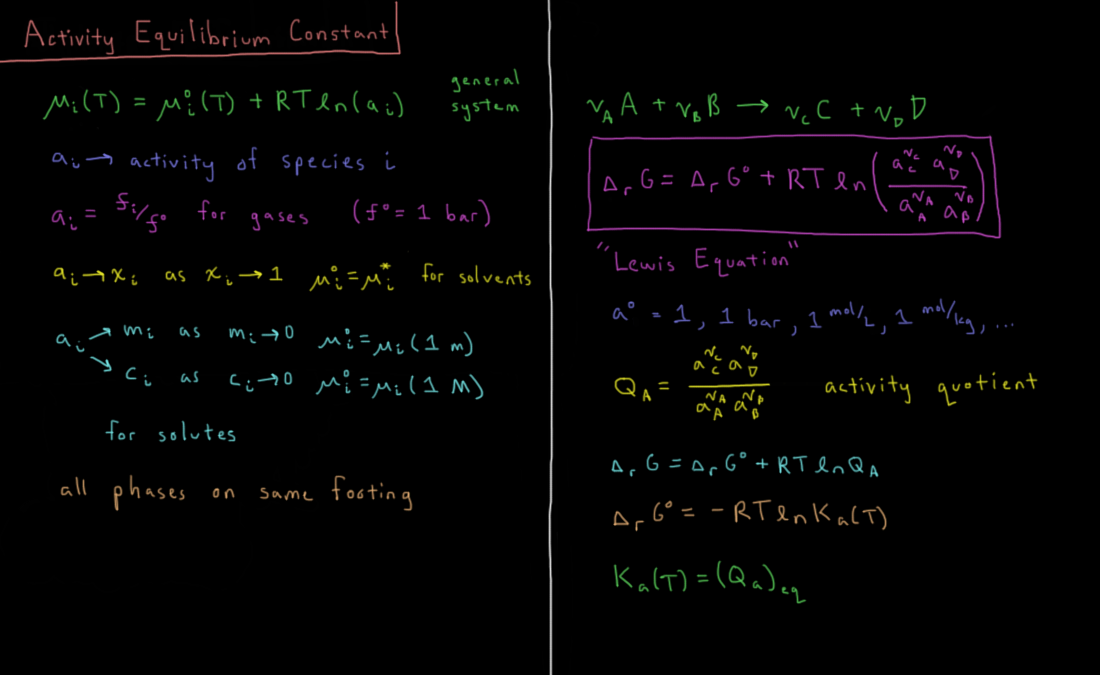 Activity Equilibrium Constant
μᵢ(T) = μᵢ°(T) + RT ln(aᵢ) general system
aᵢ → activity of species i
aᵢ = fᵢ/f° for gases (f° = 1 bar)
aᵢ → xᵢ as xᵢ → 1 μᵢ° = μᵢ* for solvents
aᵢ → mᵢ as mᵢ → 0 μᵢ° = μᵢ(1 m)
↘ cᵢ as cᵢ → 0 μᵢ° = μᵢ(1 M)
for solutes
all phases on same footing
ν_A A + ν_B B → ν_C C + ν_D D
Δ_r G = Δ_r G° + RT ln(a_C^ν_C a_D^ν_D / a_A^ν_A a_B^ν_B)
"Lewis Equation"
a° = 1, 1 bar, 1 mol/L, 1 mol/kg, ...
Q_A = a_C^ν_C a_D^ν_D / a_A^ν_A a_B^ν_B activity quotient
Δ_r G = Δ_r G° + RT ln Q_A
Δ_r G° = - RT ln K_a(T)
K_a(T) = (Q_a)_eq